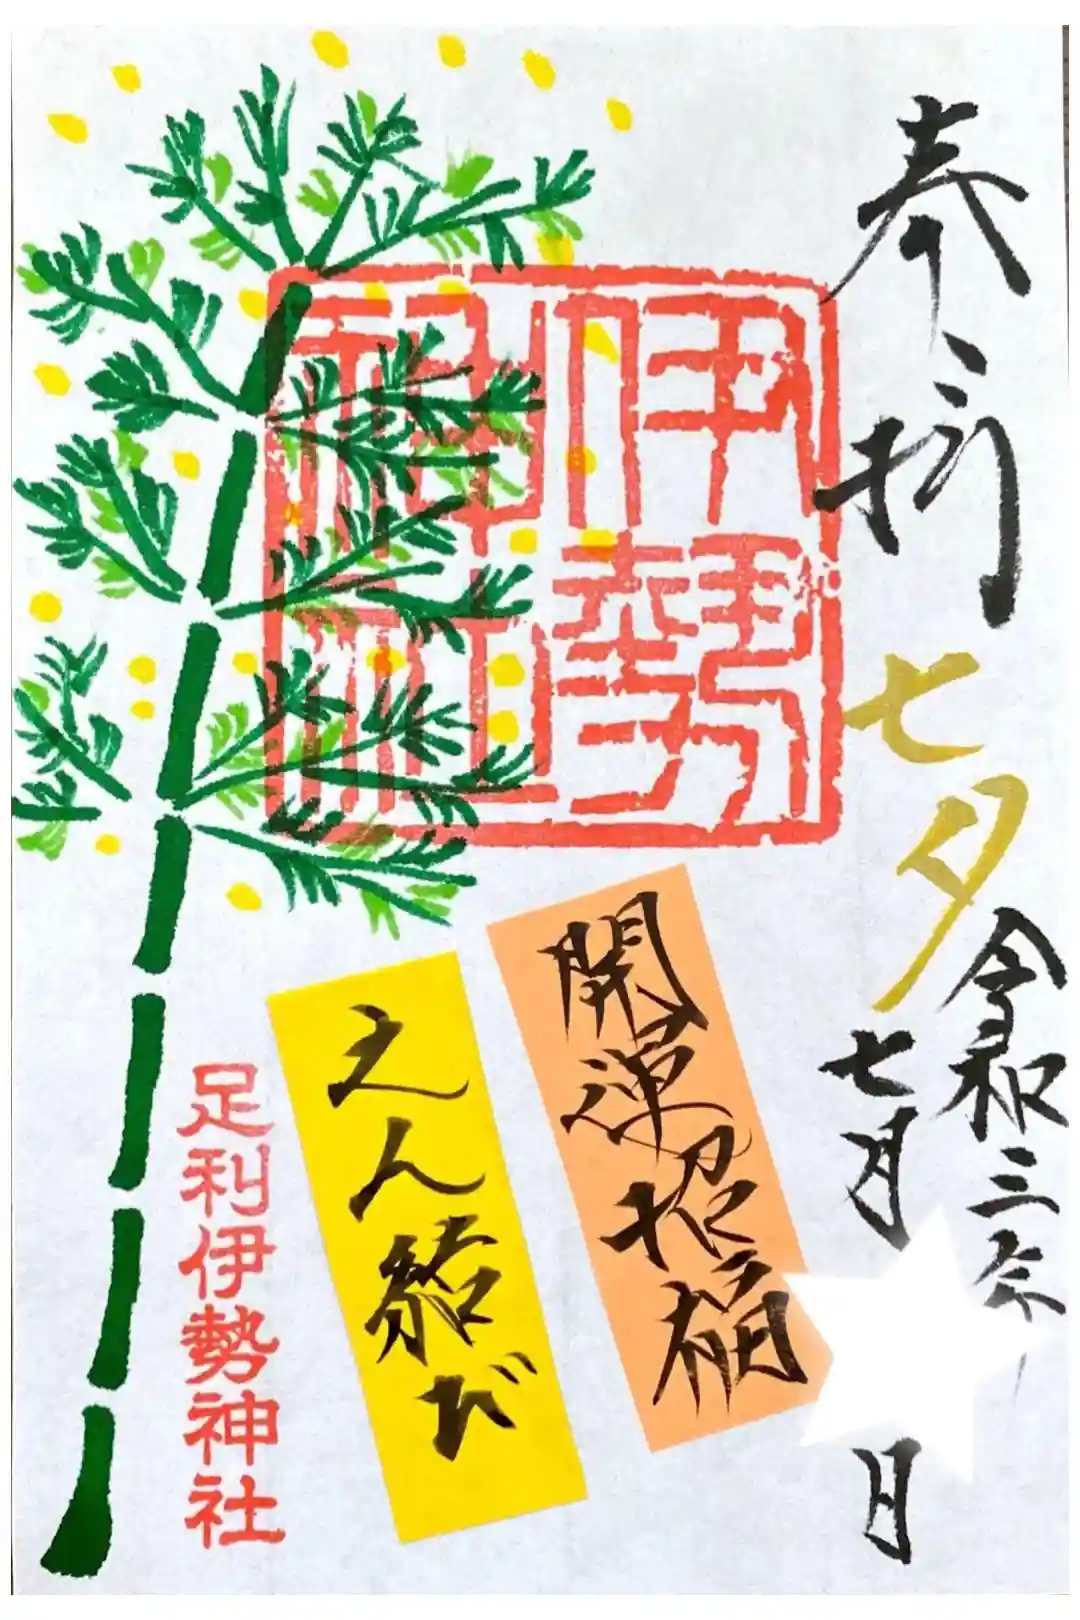 奉拝
七夕
令和三年
七月
日
伊勢
神社
開運招福
えん結び
足利伊勢神社